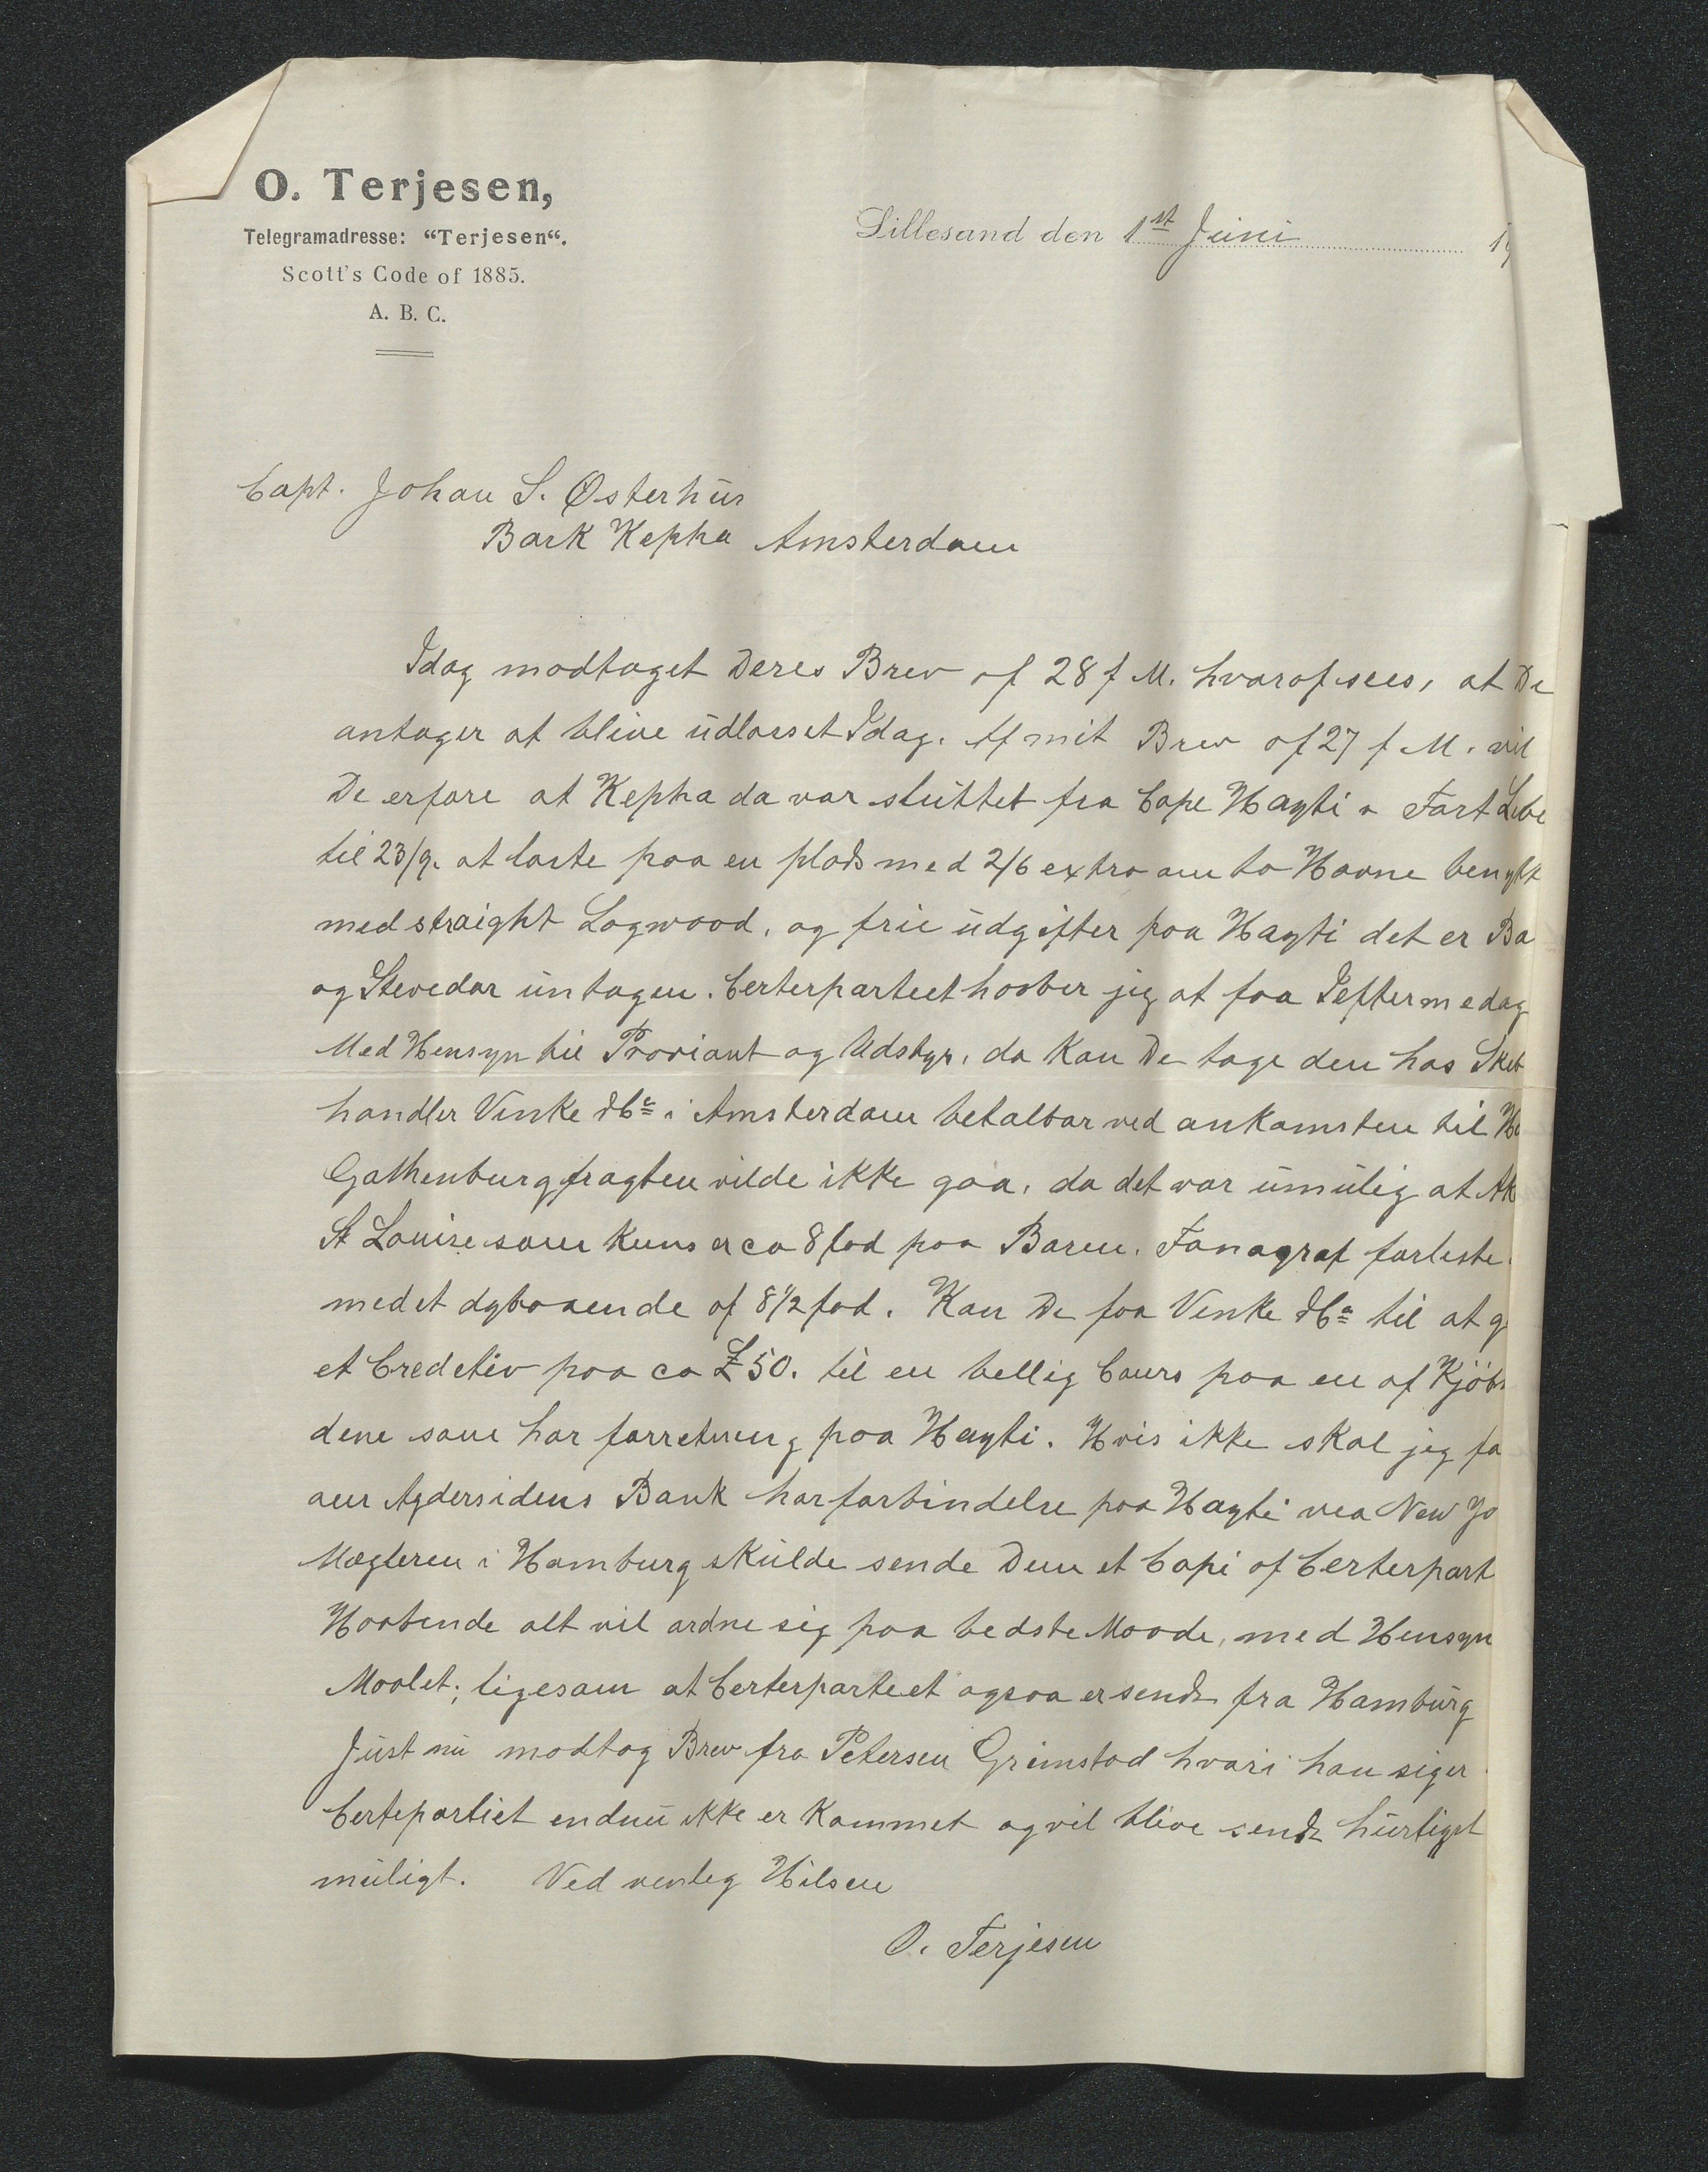 O. Terjesen,
Telegramadresse: “Terjesen“.
Scott's Code of 1885.
A. B. C.
Lillesand den 1st Juni 19
Capt. Johan S. Østerhus
Bark Kepha Amsterdam
Idag modtaget Deres Brev af 28 f M. hvoraf sees, at De
antager at blive udlosset Idag. Af mit Brev af 27 f M. vil
De erfare at Kepha da var sluttet fra Cape Hayti a Fort Libe
til 23/9. at laste paa en plads med 2/6 extra om to Havne benytt
med straight Logwood, og frie udgifter paa Hayti det er Ba
og Stevedor untagen. Certerpartiet haaber jeg at faa Ieftermedag
Med Hensyn til Proviant og Udstyr, da kan De tage den hos Skib
handler Vinke & Co i Amsterdam betalbar ved ankomsten til H
Gothenburg fragten vilde ikke gaa, da det var umulig at
St Louise som kuns er ca 8 fod paa Baren. Fonograf forliste
med et dybgaaende af 8 1/2 fod. Kan De faa Vinke & Co til at g
et Creditiv paa ca £50. til en billig Cours paa en af Kjöb
dene som har forretning paa Hayti. Hvis ikke skal jeg fo
om Agdersidens Bank har forbindelse paa Hayti via New Yo
Mægleren i Hamburg skulde sende Dem et Copi af Certerpart
Haabende alt vil ordne sig paa bedste Maade, med Hensyn
Maalet; ligesom at Certerpartiet ogsaa er sendt fra Hamburg
Just nu modtog Brev fra Petersen Grimstad hvori han siger
Certepartiet endnu ikke er kommet og vil blive sendt hurtigst
muligt. Ved venlig Hilsen
O. Terjesen